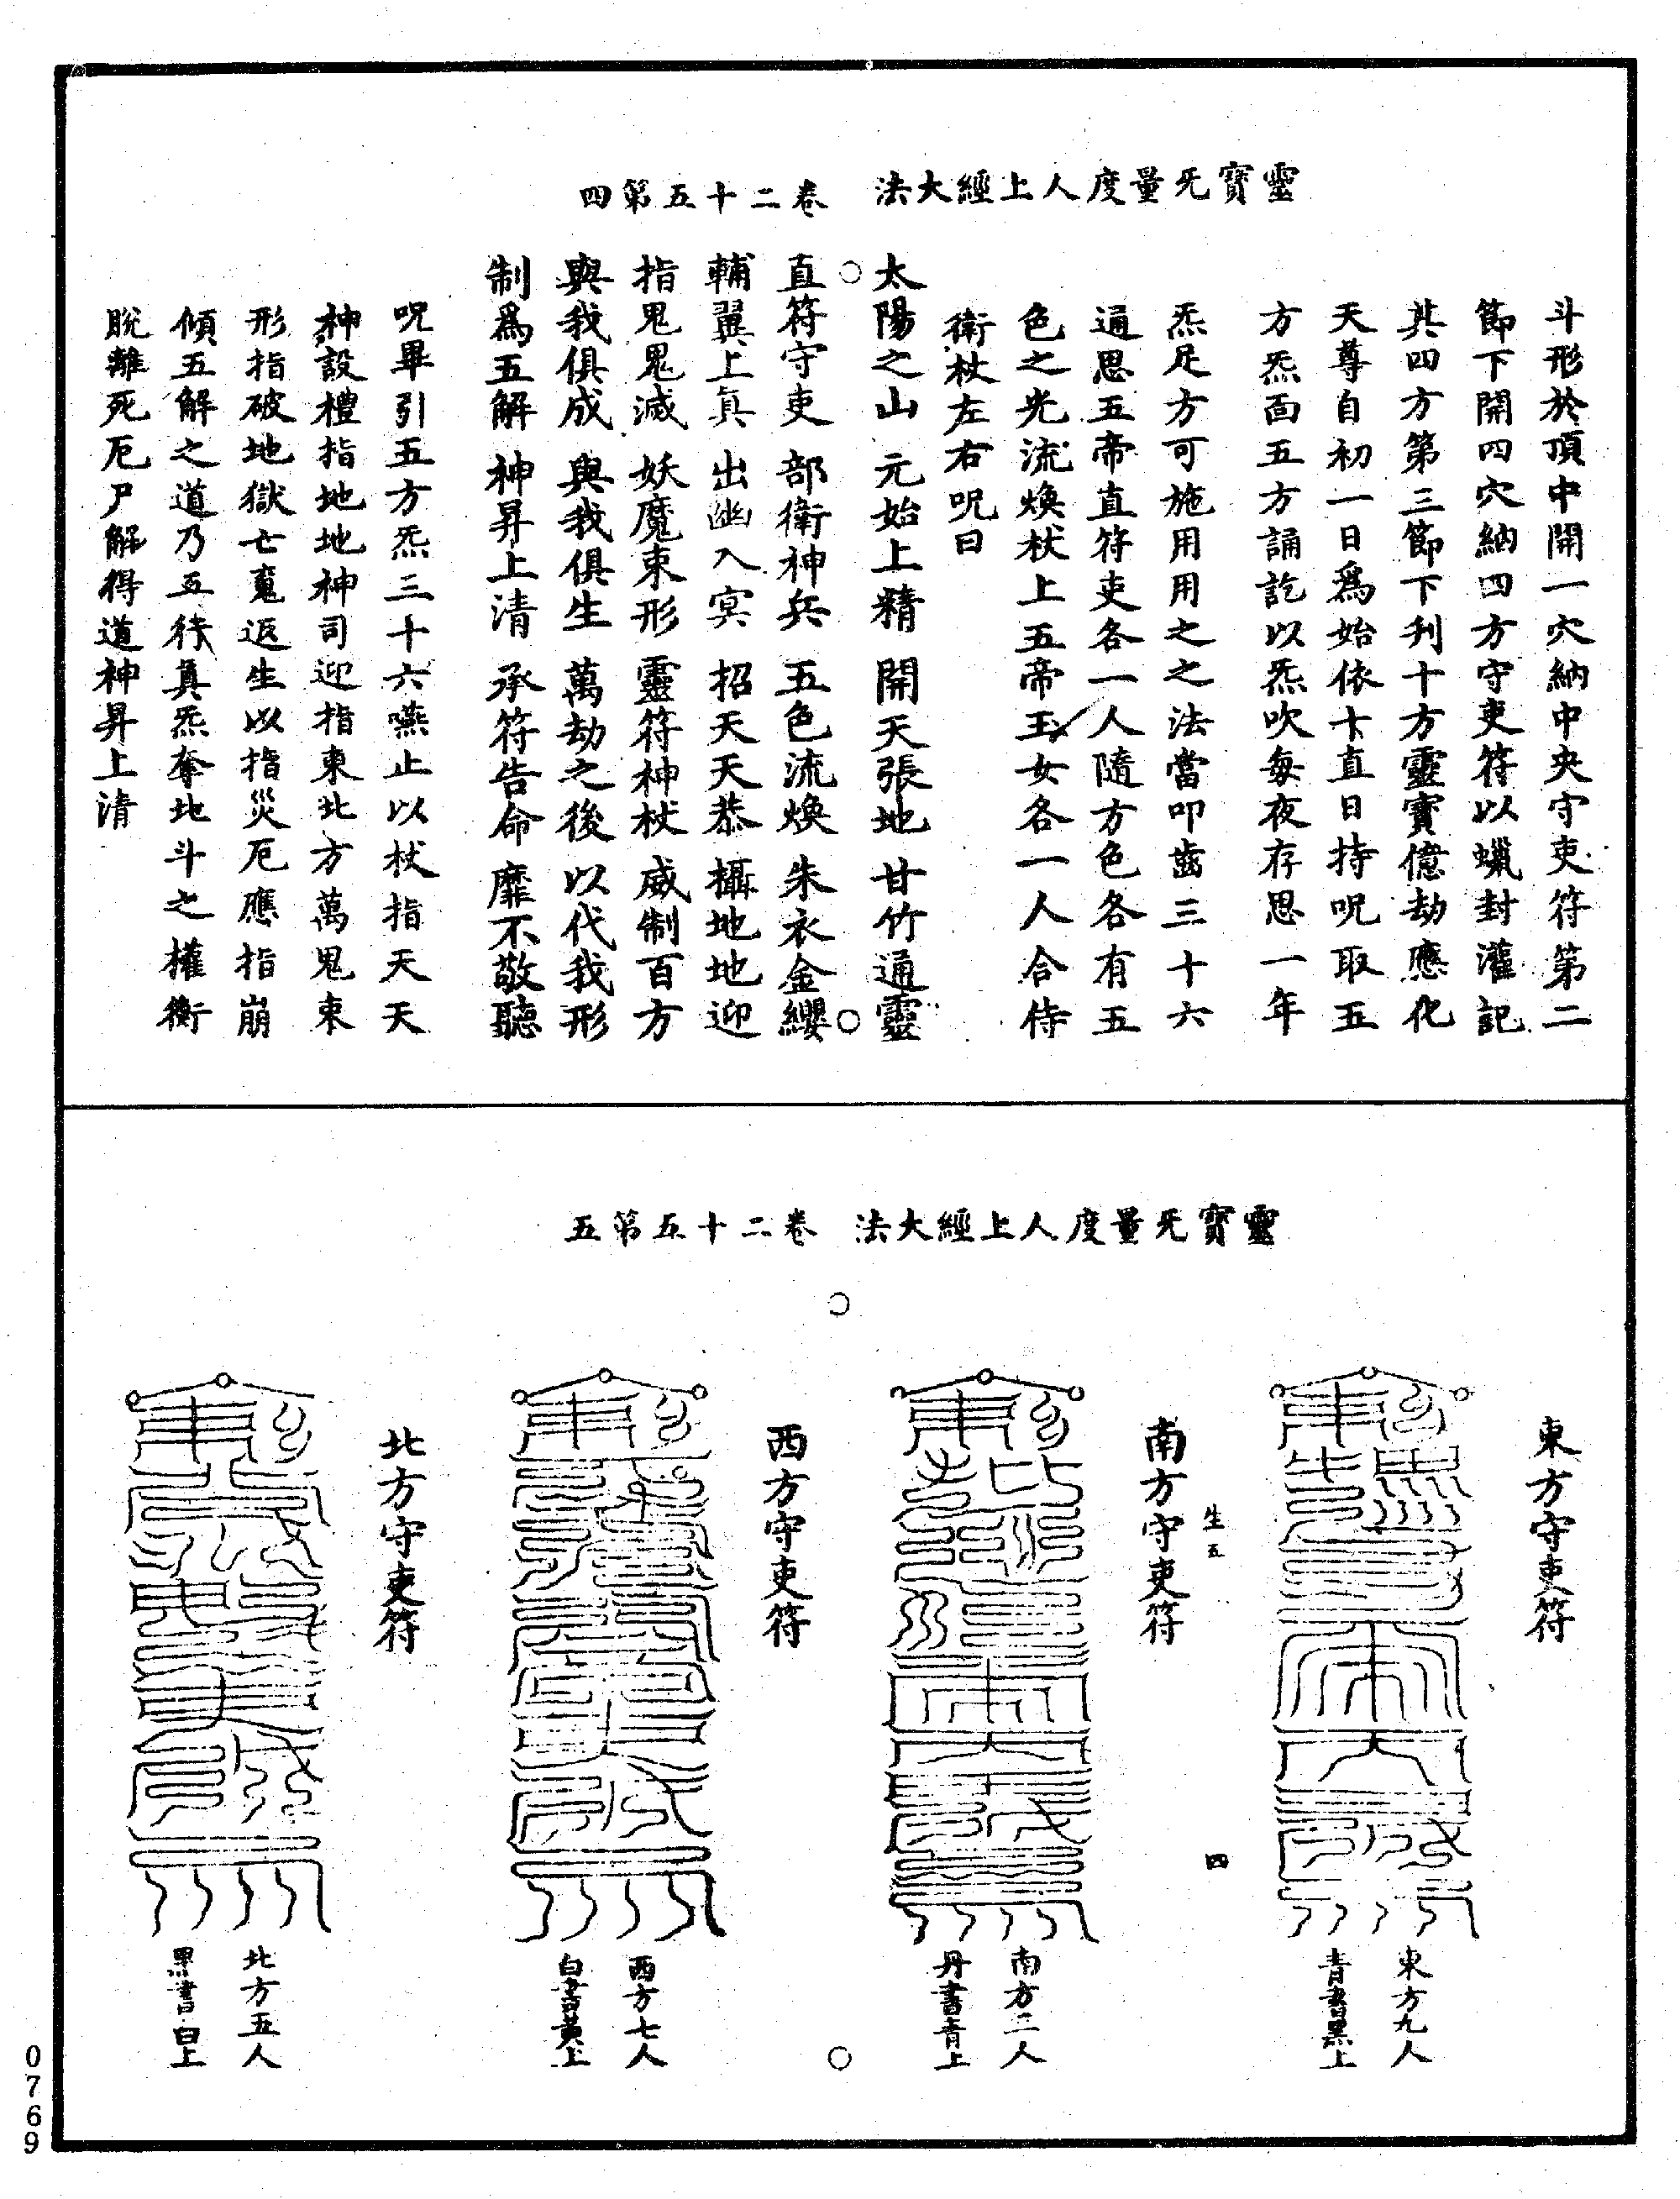 靈寶无量度人上經大法　卷二十五第四
斗形於頂中開一穴納中央守吏符第二
節下開四穴納四方守吏符以蠟封灌記
其四方第三節下刋十方靈寶億劫應化
天尊自初一日為始依十直日持呪取五
方炁面五方誦訖以炁吹每夜存思一年
炁足方可施用用之之法當叩齒三十六
通思五帝直符吏各一人隨方色各有五
色之光流煥杖上五帝玉女各一人合侍
衛杖左右呪曰
太陽之山　元始上精　開天張地　甘竹通靈
直符守吏　部衛神兵　五色流煥　朱衣金纓
輔翼上真　出幽入冥　招天天恭　攝地地迎
指鬼鬼滅　妖魔束形　靈符神杖　威制百方
與我俱成　與我俱生　萬劫之後　以代我形
制為五解　神昇上清　承符告命　靡不敬聽
呪畢引五方炁三十六嚥止以杖指天天
神設禮指地地神司迎指東北方萬鬼束
形指破地獄亡䰟返生以指災厄應指崩
傾五解之道乃五行真炁奪地斗之權衡
脫離死厄尸解得道神昇上清
靈寶无量度人上經大法　卷二十五第五
東方守吏符
東方九人
青書黑上
生五
四
南方守吏符
南方二人
丹書青上
西方守吏符
西方七人
白書黃上
北方守吏符
北方五人
黑書白上
0769